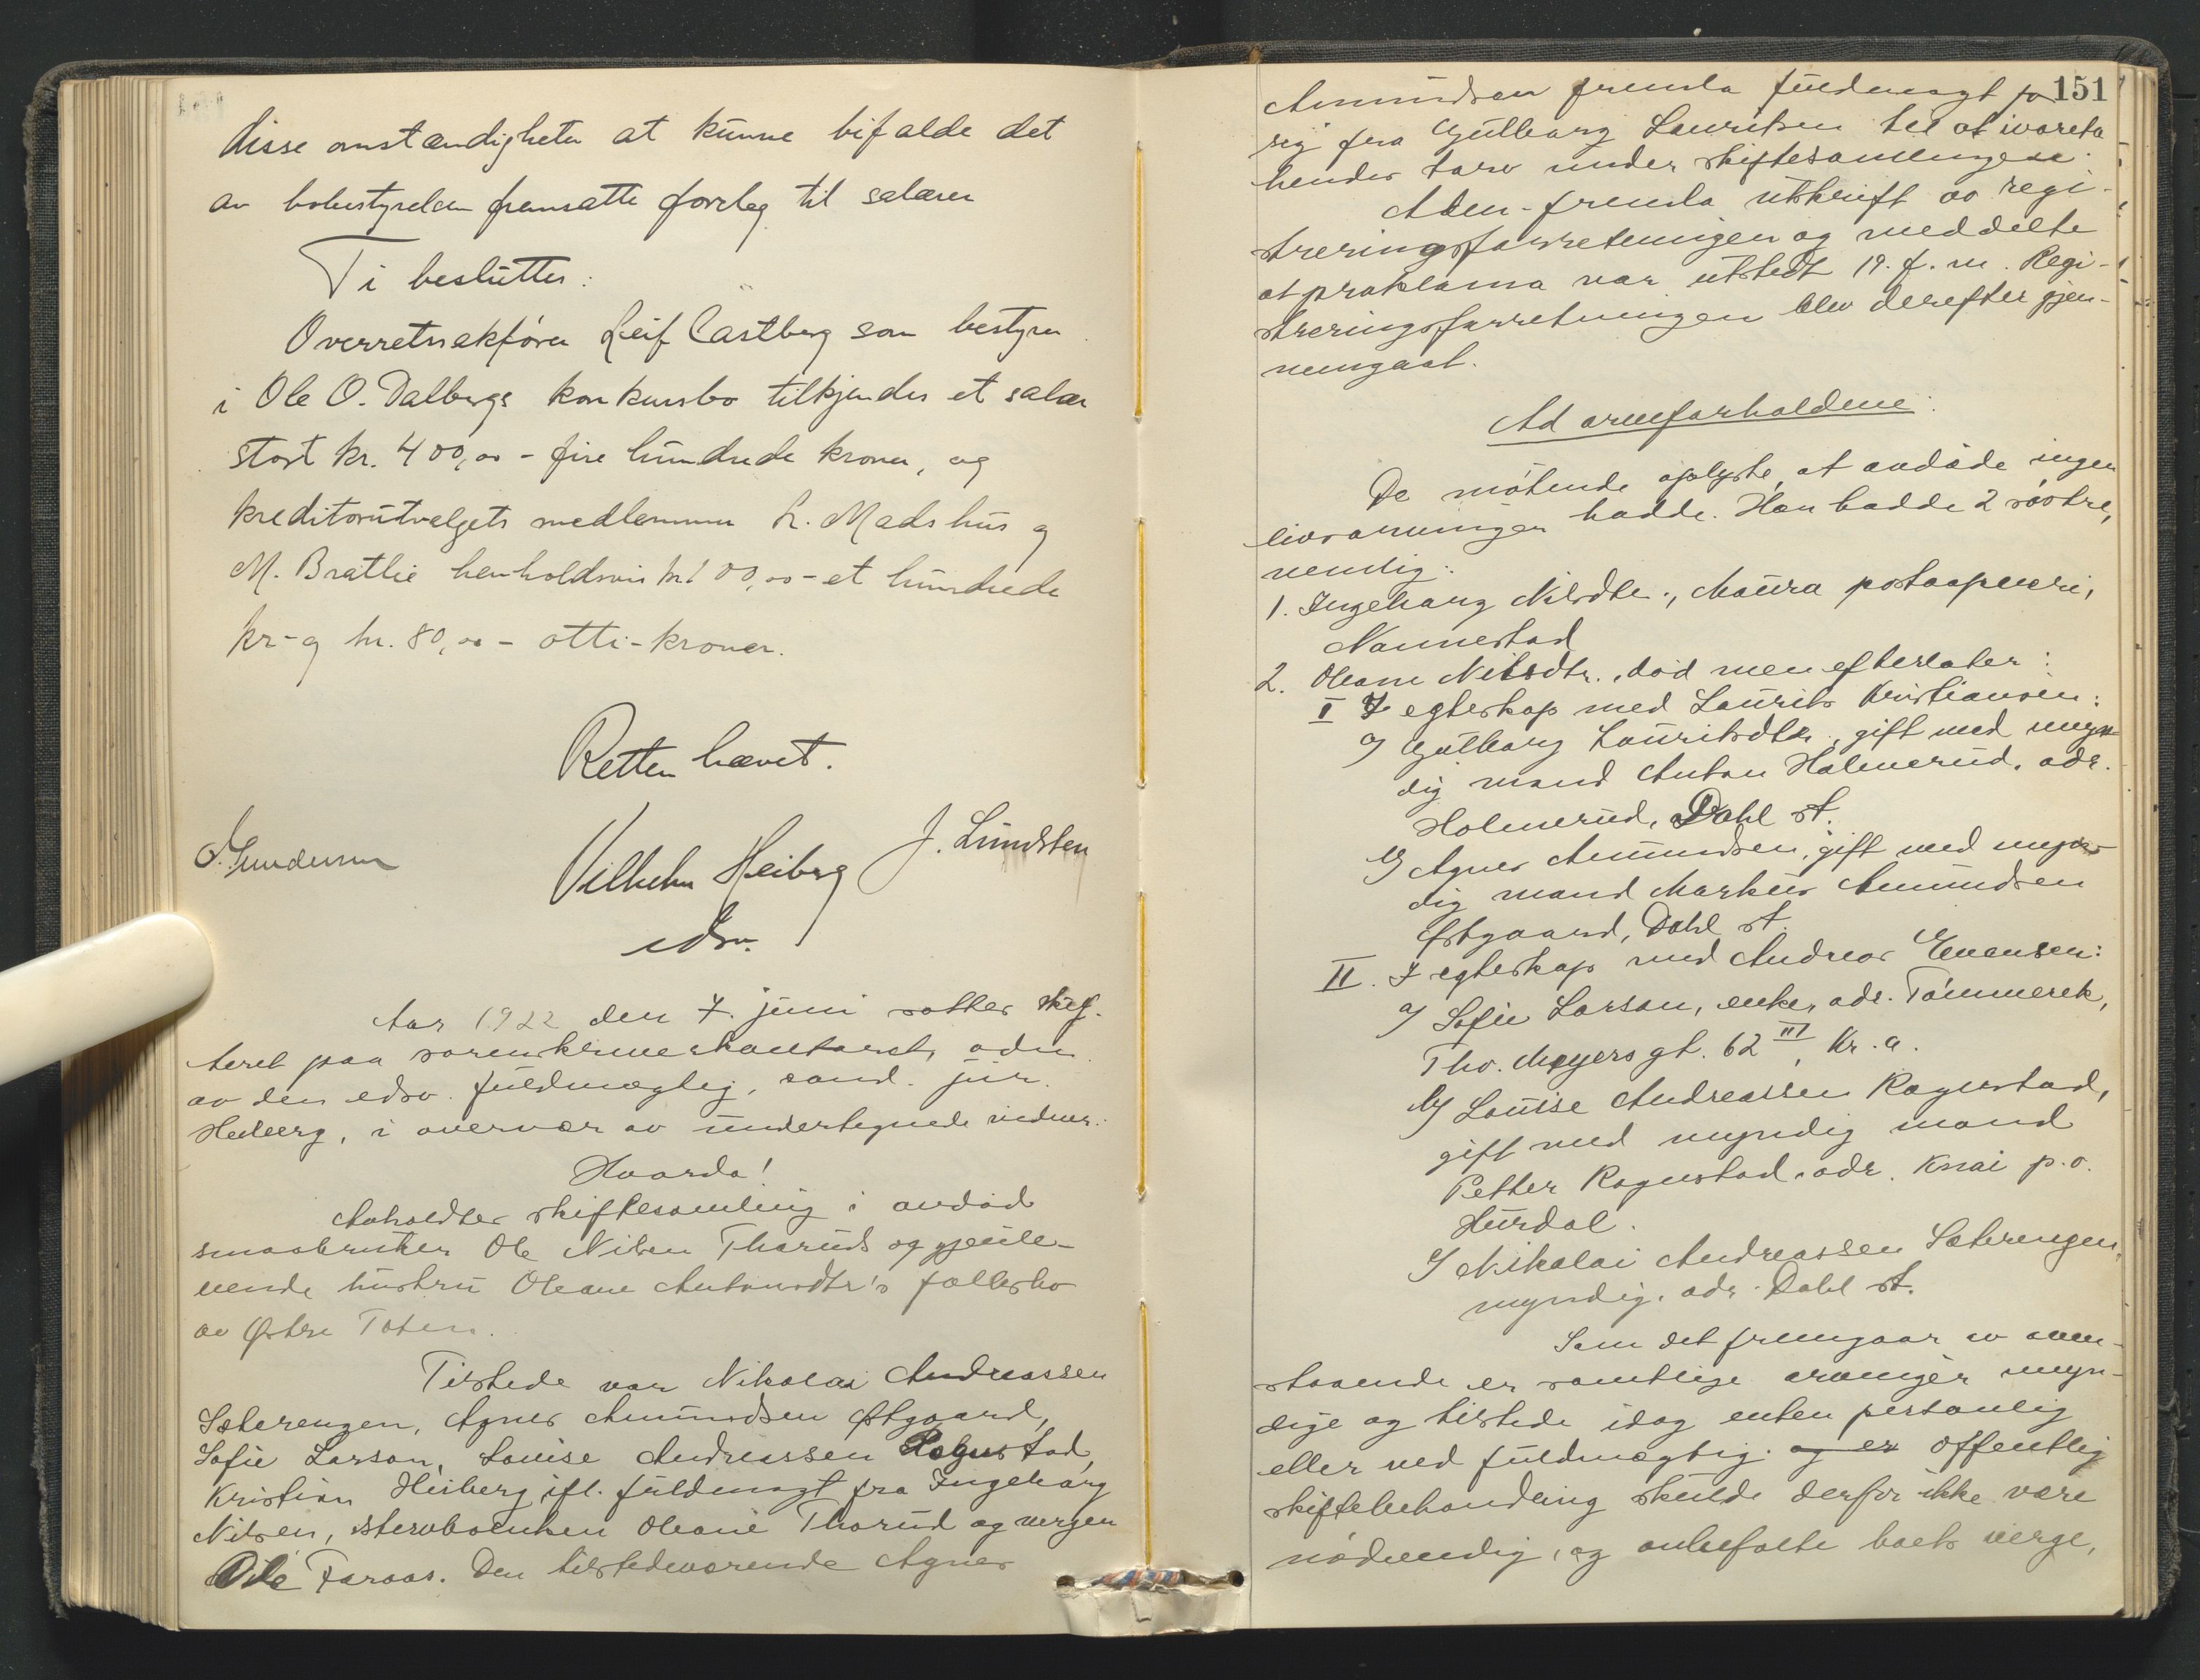 disse omstændigheter at kunne bifalde det
av bobestyrelsen fremsatte forslag til salærer
Ti besluttes:
Overretssakfører Leif Castberg som bestyrer
i Ole O. Dalbergs konkursbo tilkjendes et salær
stort kr. 400,00 - fire hundrede kroner, og
kreditorutvalgets medlemmer L. Madshus og
M. Brattlie henholdsvis kr 100,00 - et hundrede
kr - og kr. 80,00 - otti - kroner.
Retten hævet.
Vilhelm Heiberg J. Lundsten
O. Gundersen
edsv.
Aar 1922 den 7. juni sattes skif-
teret paa sorenskriverkontoret, adm.
av den edsv. fuldmægtig, cand. jur.
Heiberg, i overvær av undertegnede vidner.
Hvorda!
Avholdtes skiftesamling i avdød
smaabruker Ole Nilsen Tharuds og gjenle-
vende hustru Oleane Antonsdtr's fællesbo
av Østre Toten.
Tilstede var Nikolai Andreassen
Sæterengen, Agnes Amundsen Østgaard,
Sofie Larson, Louise Andreassen Rognstad,
Kristian Heiberg ifl. fuldmagt fra Ingeborg
Nilsen, stervboenken Oleane Thorud og vergen
Ole Faraas. Den tilstedeværende Agnes
151
Amundsen fremla fuldmagt for
sig fra Gulborg Lauritsen til at ivareta
hendes tarv under skiftesamlingen.
Adm. fremla utskrift av regi-
streringsforretningen og meddelte
at proklama var utstedt 19. f. m. Regi-
streringsforretningen blev derefter gjen-
nemgaat.
Ad arveforholdene:
De møtende oplyste, at avdøde ingen
livsarvinger hadde. Han hadde 2 søstre,
nemlig:
1. Ingeborg Nilsdtr., Maura postaapneri,
Nannestad
2. Oleane Nilsdtr., død men efterlater:
I I egteskap med Laurits Kristiansen:
a) Gulborg Lauritsdtr, gift med myn-
dig mand Anton Holmerud, adr.
Holmerud, Dahl st.
b) Agnes Amundsen, gift med myn-
dig mand Markus Amundsen
Østgaard, Dahl st.
II. I egteskap med Andreas Evensen:
a) Sofie Larson, enke, adr. Tømmerek,
Tho. Meyers gt. 62 III, Kr.a.
b) Louise Andreassen Rognstad,
gift med myndig mand
Petter Rognstad, adr. Knai p.o.
Hurdal.
c) Nikolai Andreassen Sæterengen,
myndig, adr. Dahl st.
Som det fremgaar av oven-
staaende er samtlige arvinger myn-
dige og tilstede idag enten personlig
eller ved fuldmægtig. og er offentlig
skiftebehandling skulde derfor ikke være
nødvendig, og anbefalte boets verge,